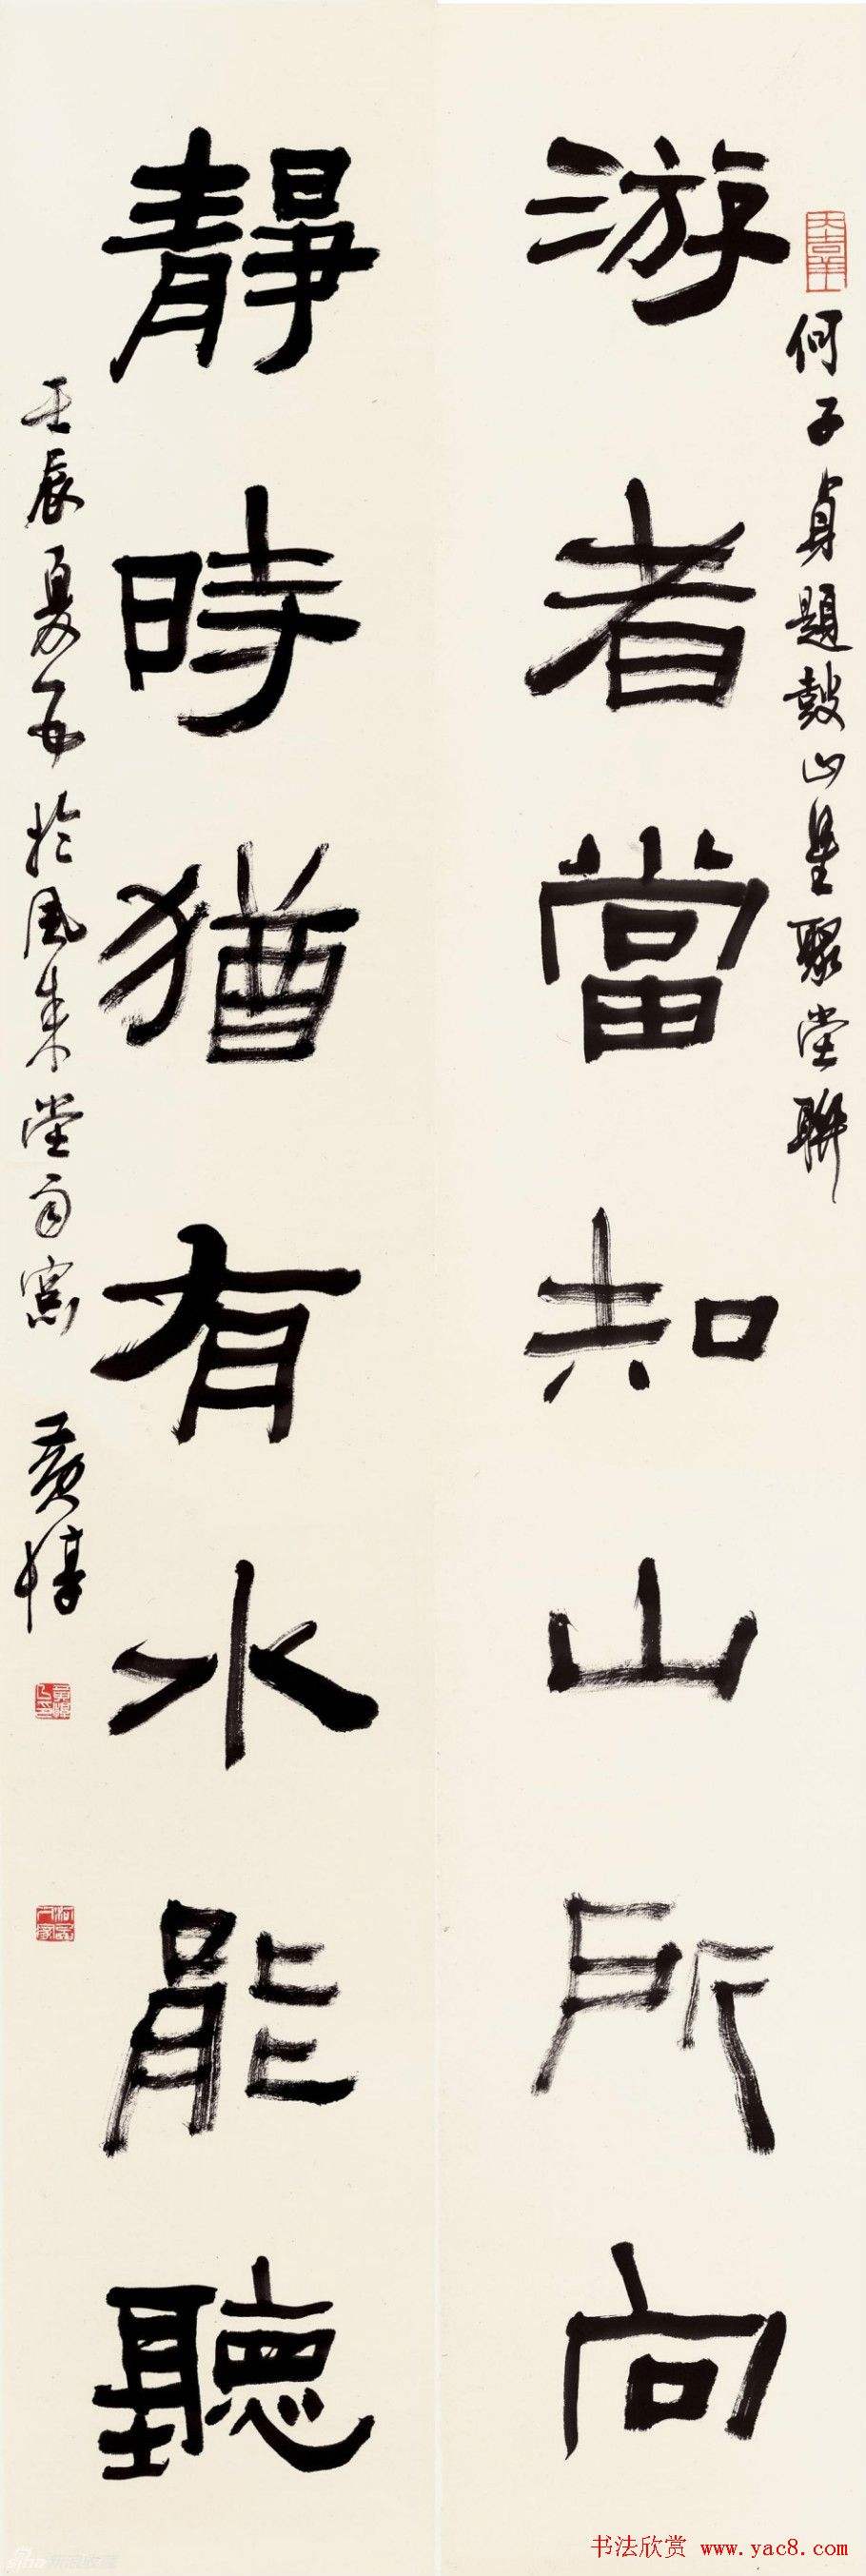 何子貞題鼓山星聚堂聯
游者當知山所向
靜時猶有水能聽
壬辰夏五於風來堂南窗
黃惇
书法欣赏 www.yac8.com